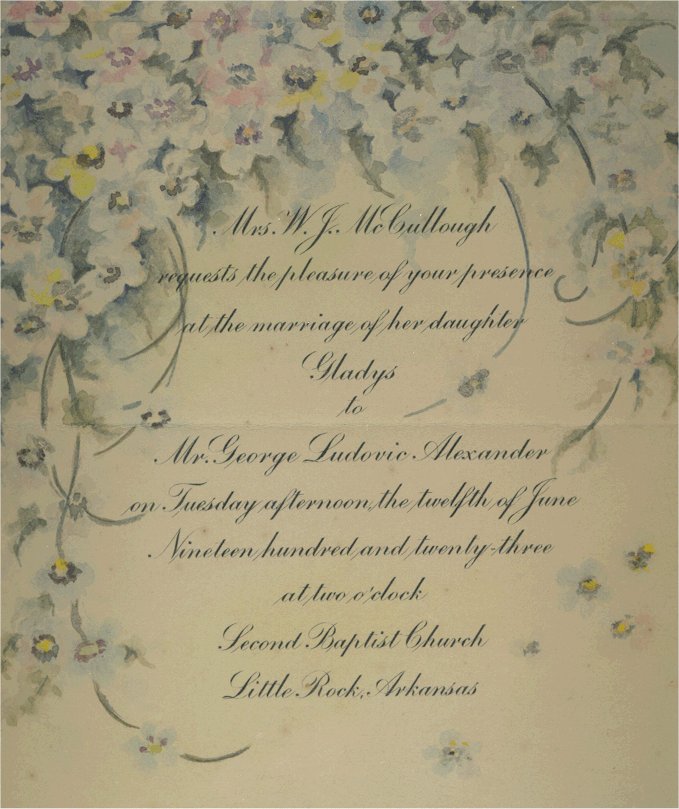 Mrs. W. J. McCullough
requests the pleasure of your presence
at the marriage of her daughter
Gladys
to
Mr. George Ludovic Alexander
on Tuesday afternoon, the twelfth of June
Nineteen hundred and twenty-three
at two o'clock
Second Baptist Church
Little Rock, Arkansas